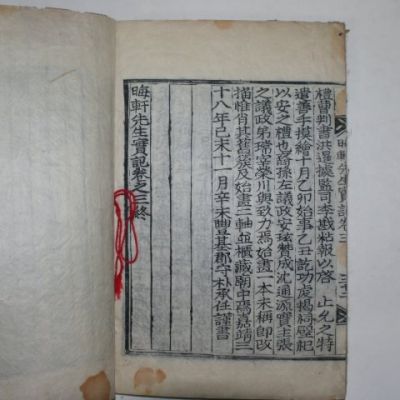 禮曹判書洪暹據監司李戡粘報以啓 上允之特
遣善手摸繪十月乙卯始事乙丑訖功虔揭祠壁祀
以安之禮也裔孫左議政安玹贊成沈通源實主張
之議政第瑞宰榮川與致力焉始畫一本未稱卽改
描惟肖其舊簇及始畫二軸並櫃藏廟中焉嘉靖三
十八年己未十一月辛未豐基郡守朴承任謹書
晦軒先生實記卷之三終
晦軒先生實記卷三